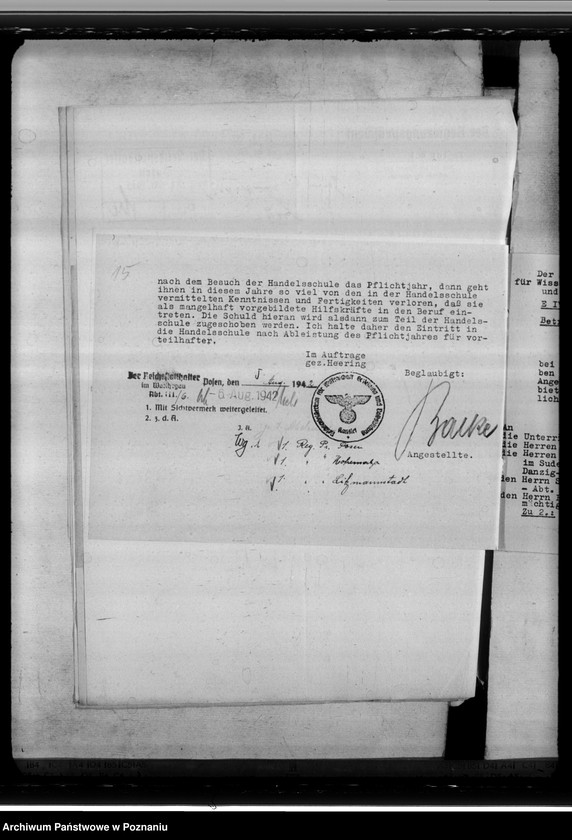 15
nach dem Besuch der Handelsschule das Pflichtjahr, dann geht
ihnen in diesem Jahre so viel von den in der Handelsschule
vermittelten Kenntnissen und Fertigkeiten verloren, daß sie
als mangelhaft vorgebildete Hilfskräfte in den Beruf ein-
treten. Die Schuld hieran wird alsdann zum Teil der Handels-
schule zugeschoben werden. Ich halte daher den Eintritt in
die Handelsschule nach Ableistung des Pflichtjahres für vor-
teilhafter.
Im Auftrage
gez.Heering
Beglaubigt:
Der Reichsstatthalter
im Warthegau
Posen, den 5. Aug. 1942
Abt. III/
-6. AUG. 1942
1. Mit Sichtvermerk weitergeleitet.
2. z. d. A.
J. A.
Reg. Pr. Posen
" " Hohensalza
" " Litzmannstadt
Angestellte.
Der
für Wiss
und
E I
Bet
bei
ben
Ange
biet
lich
An
die Unterr
die Herren
die Herren
im Sude
Danzig-
den Herrn
- Abt.
den Herrn
mächtig
Zu 2.:
Archiwum Państwowe w Poznaniu